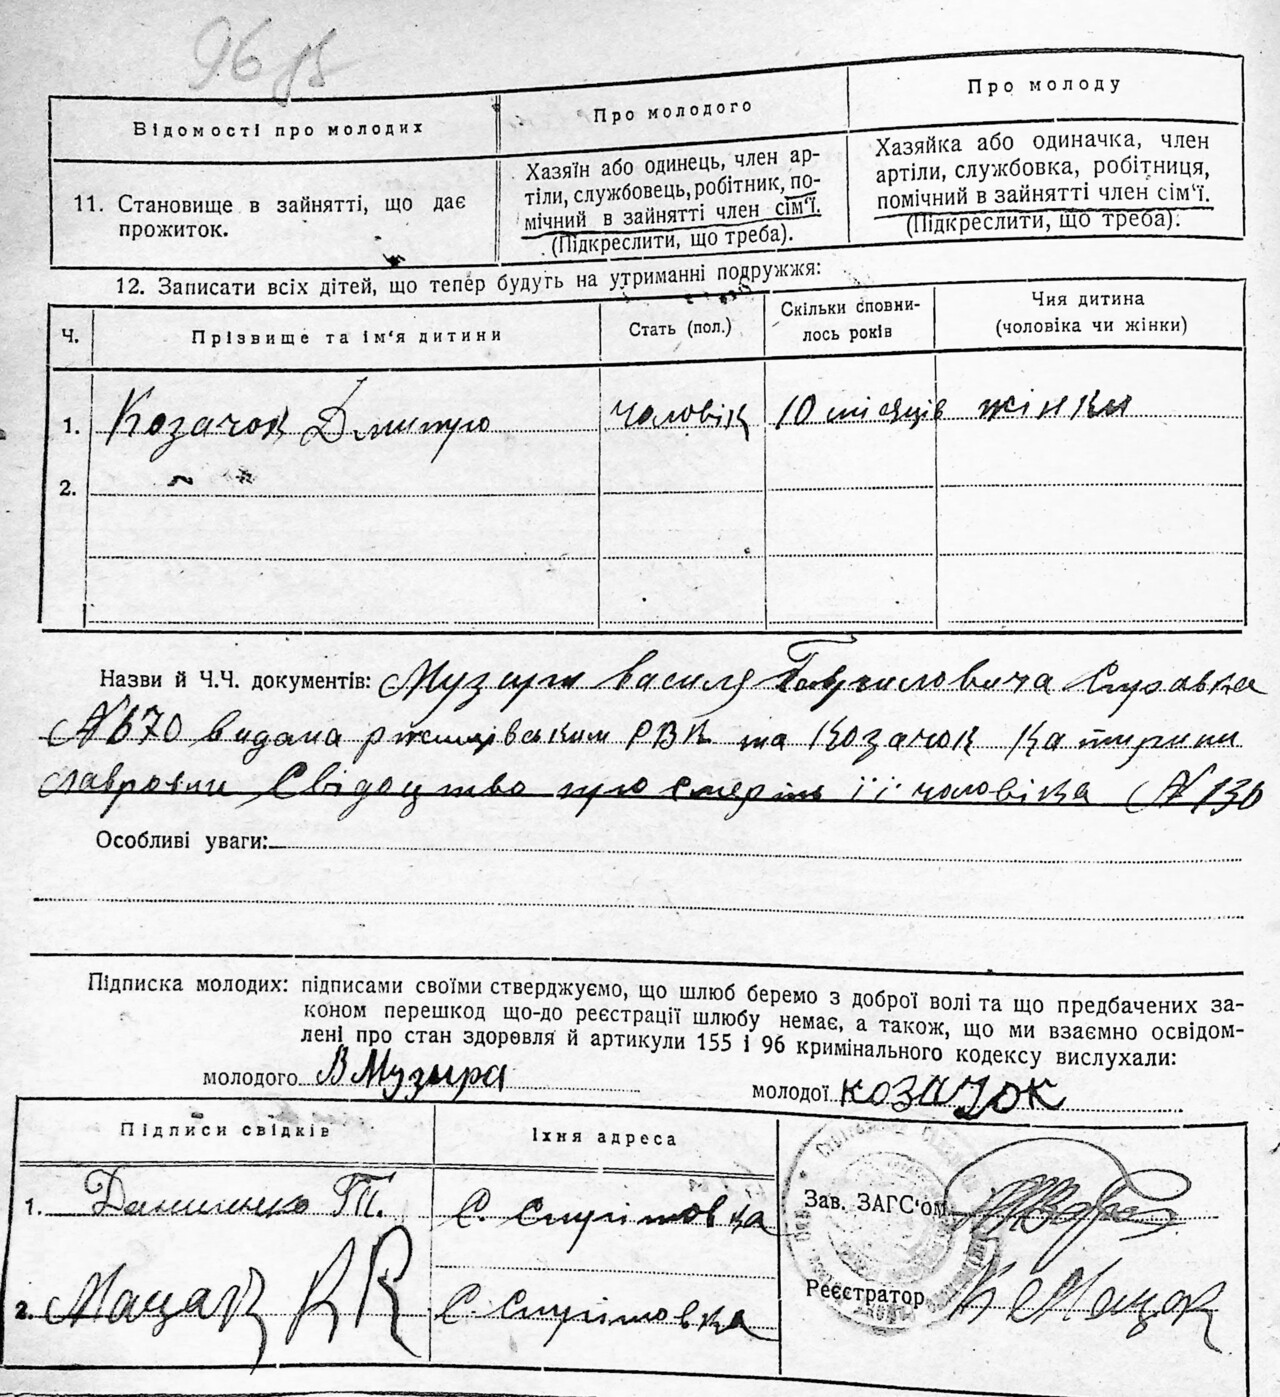 96
Відомості про молодих
Про молодого
Про молоду
11. Становище в зайнятті, що дає
прожиток.
Хазяїн або одинець, член ар-
тіли, службовець, робітник, по-
мічний в зайнятті член сім'ї.
(Підкреслити, що треба).
Хазяйка або одиначка, член
артіли, службовка, робітниця,
помічний в зайнятті член сім'ї.
(Підкреслити, що треба).
12. Записати всіх дітей, що тепер будуть на утриманні подружжя:
Ч.
Прізвище та ім'я дитини
Стать (пол.)
Скільки сповни-
лось років
Чия дитина
(чоловіка чи жінки)
1. Козачок Дмитро чоловік 10 місяців жінки
2.
Назви й Ч.Ч. документів: Музири Василя Гавриловича Справка
№ 670 видана РВК та Козачок Катирини
Лавровни Свідоцтво про смерть її чоловіка № 130
Особливі уваги:
Підписка молодих: підписами своїми стверджуємо, що шлюб беремо з доброї волі та що предбачених за-
коном перешкод що-до реєстрації шлюбу немає, а також, що ми взаємно освідом-
лені про стан здоровля й артикули 155 і 96 кримінального кодексу вислухали:
молодого В Музира
молодої козачок
Підписи свідків
Їхня адреса
1. Даниленко Т.
2. Мацак
Зав. ЗАГС'ом
Реєстратор Мацак